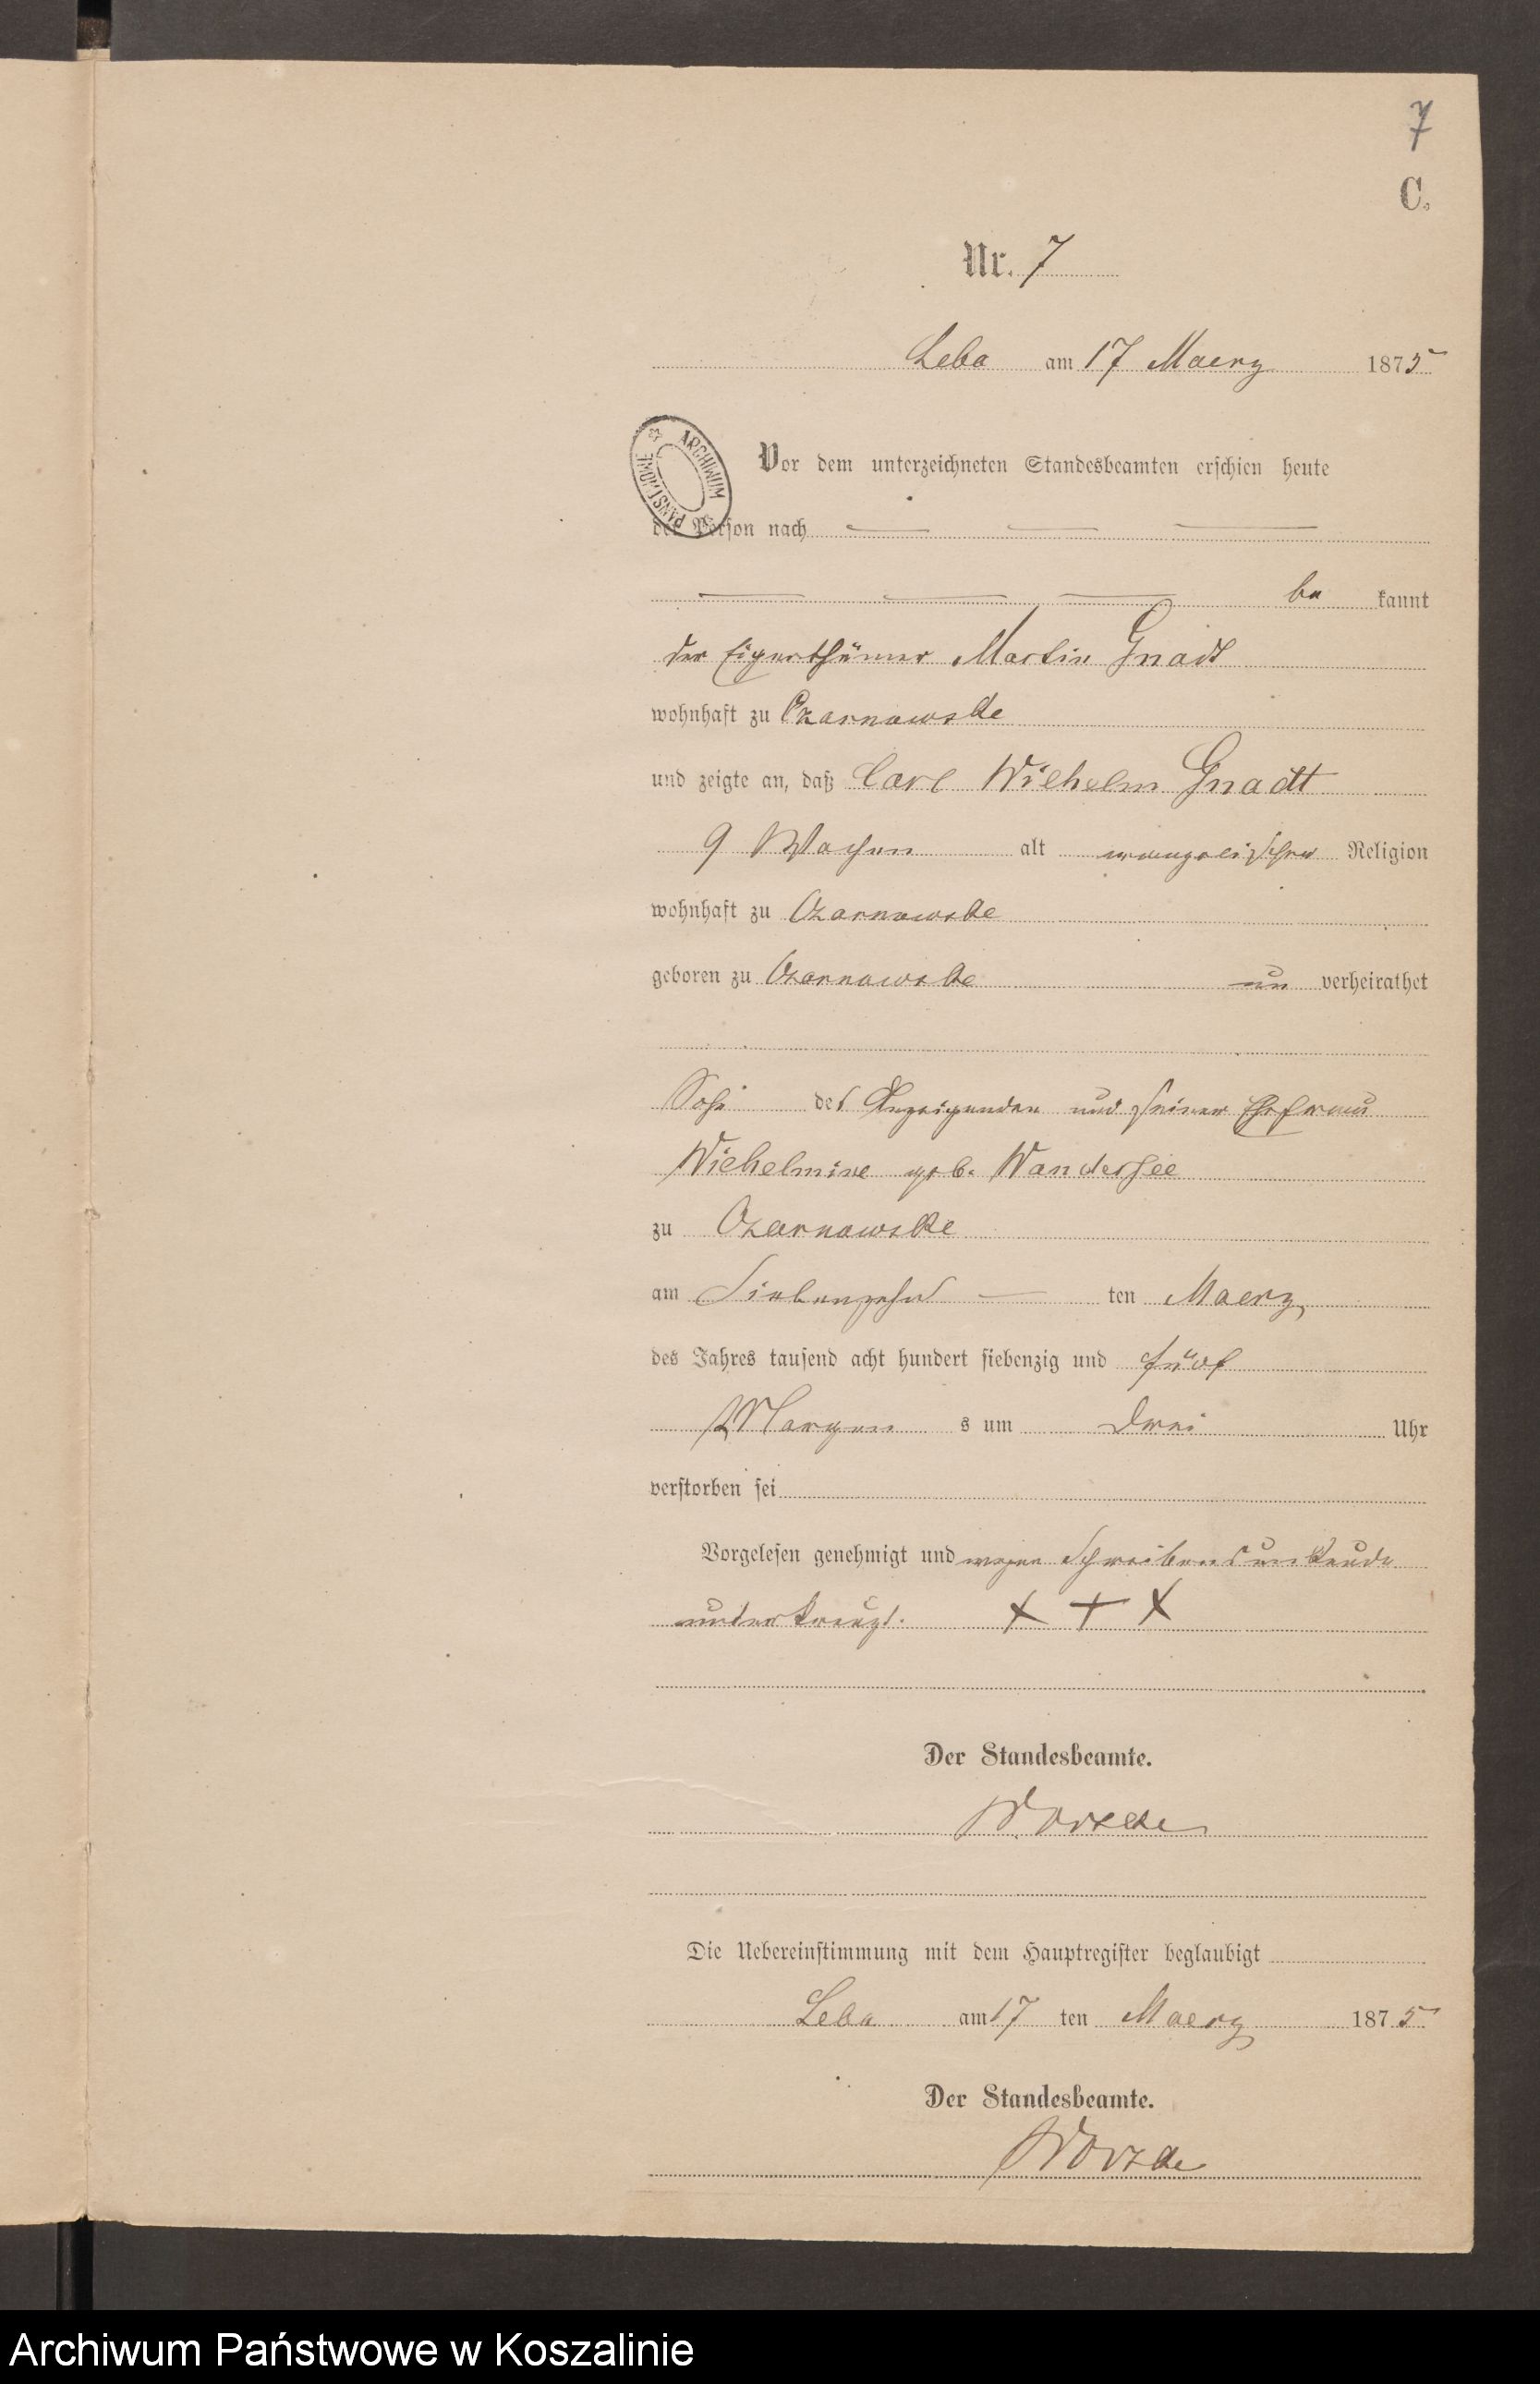 7
C.
Nr. 7
Leba am 17 Maerz 1875
Vor dem unterzeichneten Standesbeamten erschien heute
der Person nach
be kannt
der Eigenthümer Martin Gnadt
wohnhaft zu Czarnowske
und zeigte an, daß Carl Wilhelm Gnadt
9 Wochen alt evangelischer Religion
wohnhaft zu Czarnowske
geboren zu Czarnowske un verheirathet
Sohn des Anzeigenden und seiner Ehefrau
Wilhelmine geb. Wandersee
zu Czarnowske
am Siebenzehn ten Maerz
des Jahres tausend acht hundert siebenzig und fünf
Morgen s um Drei Uhr
verstorben sei
Vorgelesen genehmigt und wegen Schreibensunkunde
unterkreuzt. X + X
Der Standesbeamte.
Die Uebereinstimmung mit dem Hauptregister beglaubigt
Leba am 17 ten Maerz 1875
Der Standesbeamte.
ARCHIWUM PAŃSTWOWE
Archiwum Państwowe w Koszalinie